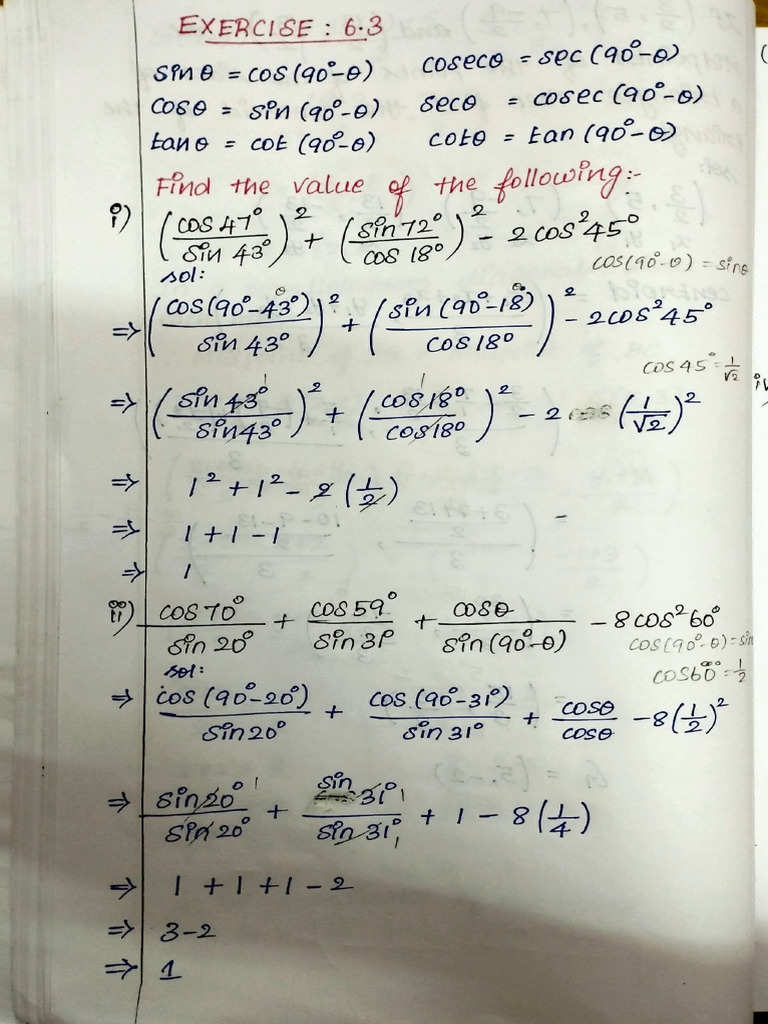 EXERCISE : 6.3
sinθ = cos(90°-θ) cosecθ = sec(90°-θ)
cosθ = sin(90°-θ) secθ = cosec(90°-θ)
tanθ = cot(90°-θ) cotθ = tan(90°-θ)
Find the value of the following:-
i) (cos47°/sin43°)² + (sin72°/cos18°)² - 2cos²45°
cos(90°-θ) = sinθ
sol:
⇒ (cos(90°-43°)/sin43°)² + (sin(90°-18)/cos18°)² - 2cos²45°
cos45° = 1/√2
⇒ (sin43°/sin43°)² + (cos18°/cos18°)² - 2 (1/√2)²
⇒ 1² + 1² - 2(1/2)
⇒ 1 + 1 - 1
⇒ 1
ii) cos70°/sin20° + cos59°/sin31° + cosθ/sin(90°-θ) - 8cos²60°
cos(90°-θ) = sin
cos60° = 1/2
sol:
⇒ cos(90°-20°)/sin20° + cos(90°-31°)/sin31° + cosθ/cosθ - 8(1/2)²
⇒ sin20°/sin20° + sin31°/sin31° + 1 - 8(1/4)
⇒ 1 + 1 + 1 - 2
⇒ 3-2
⇒ 1